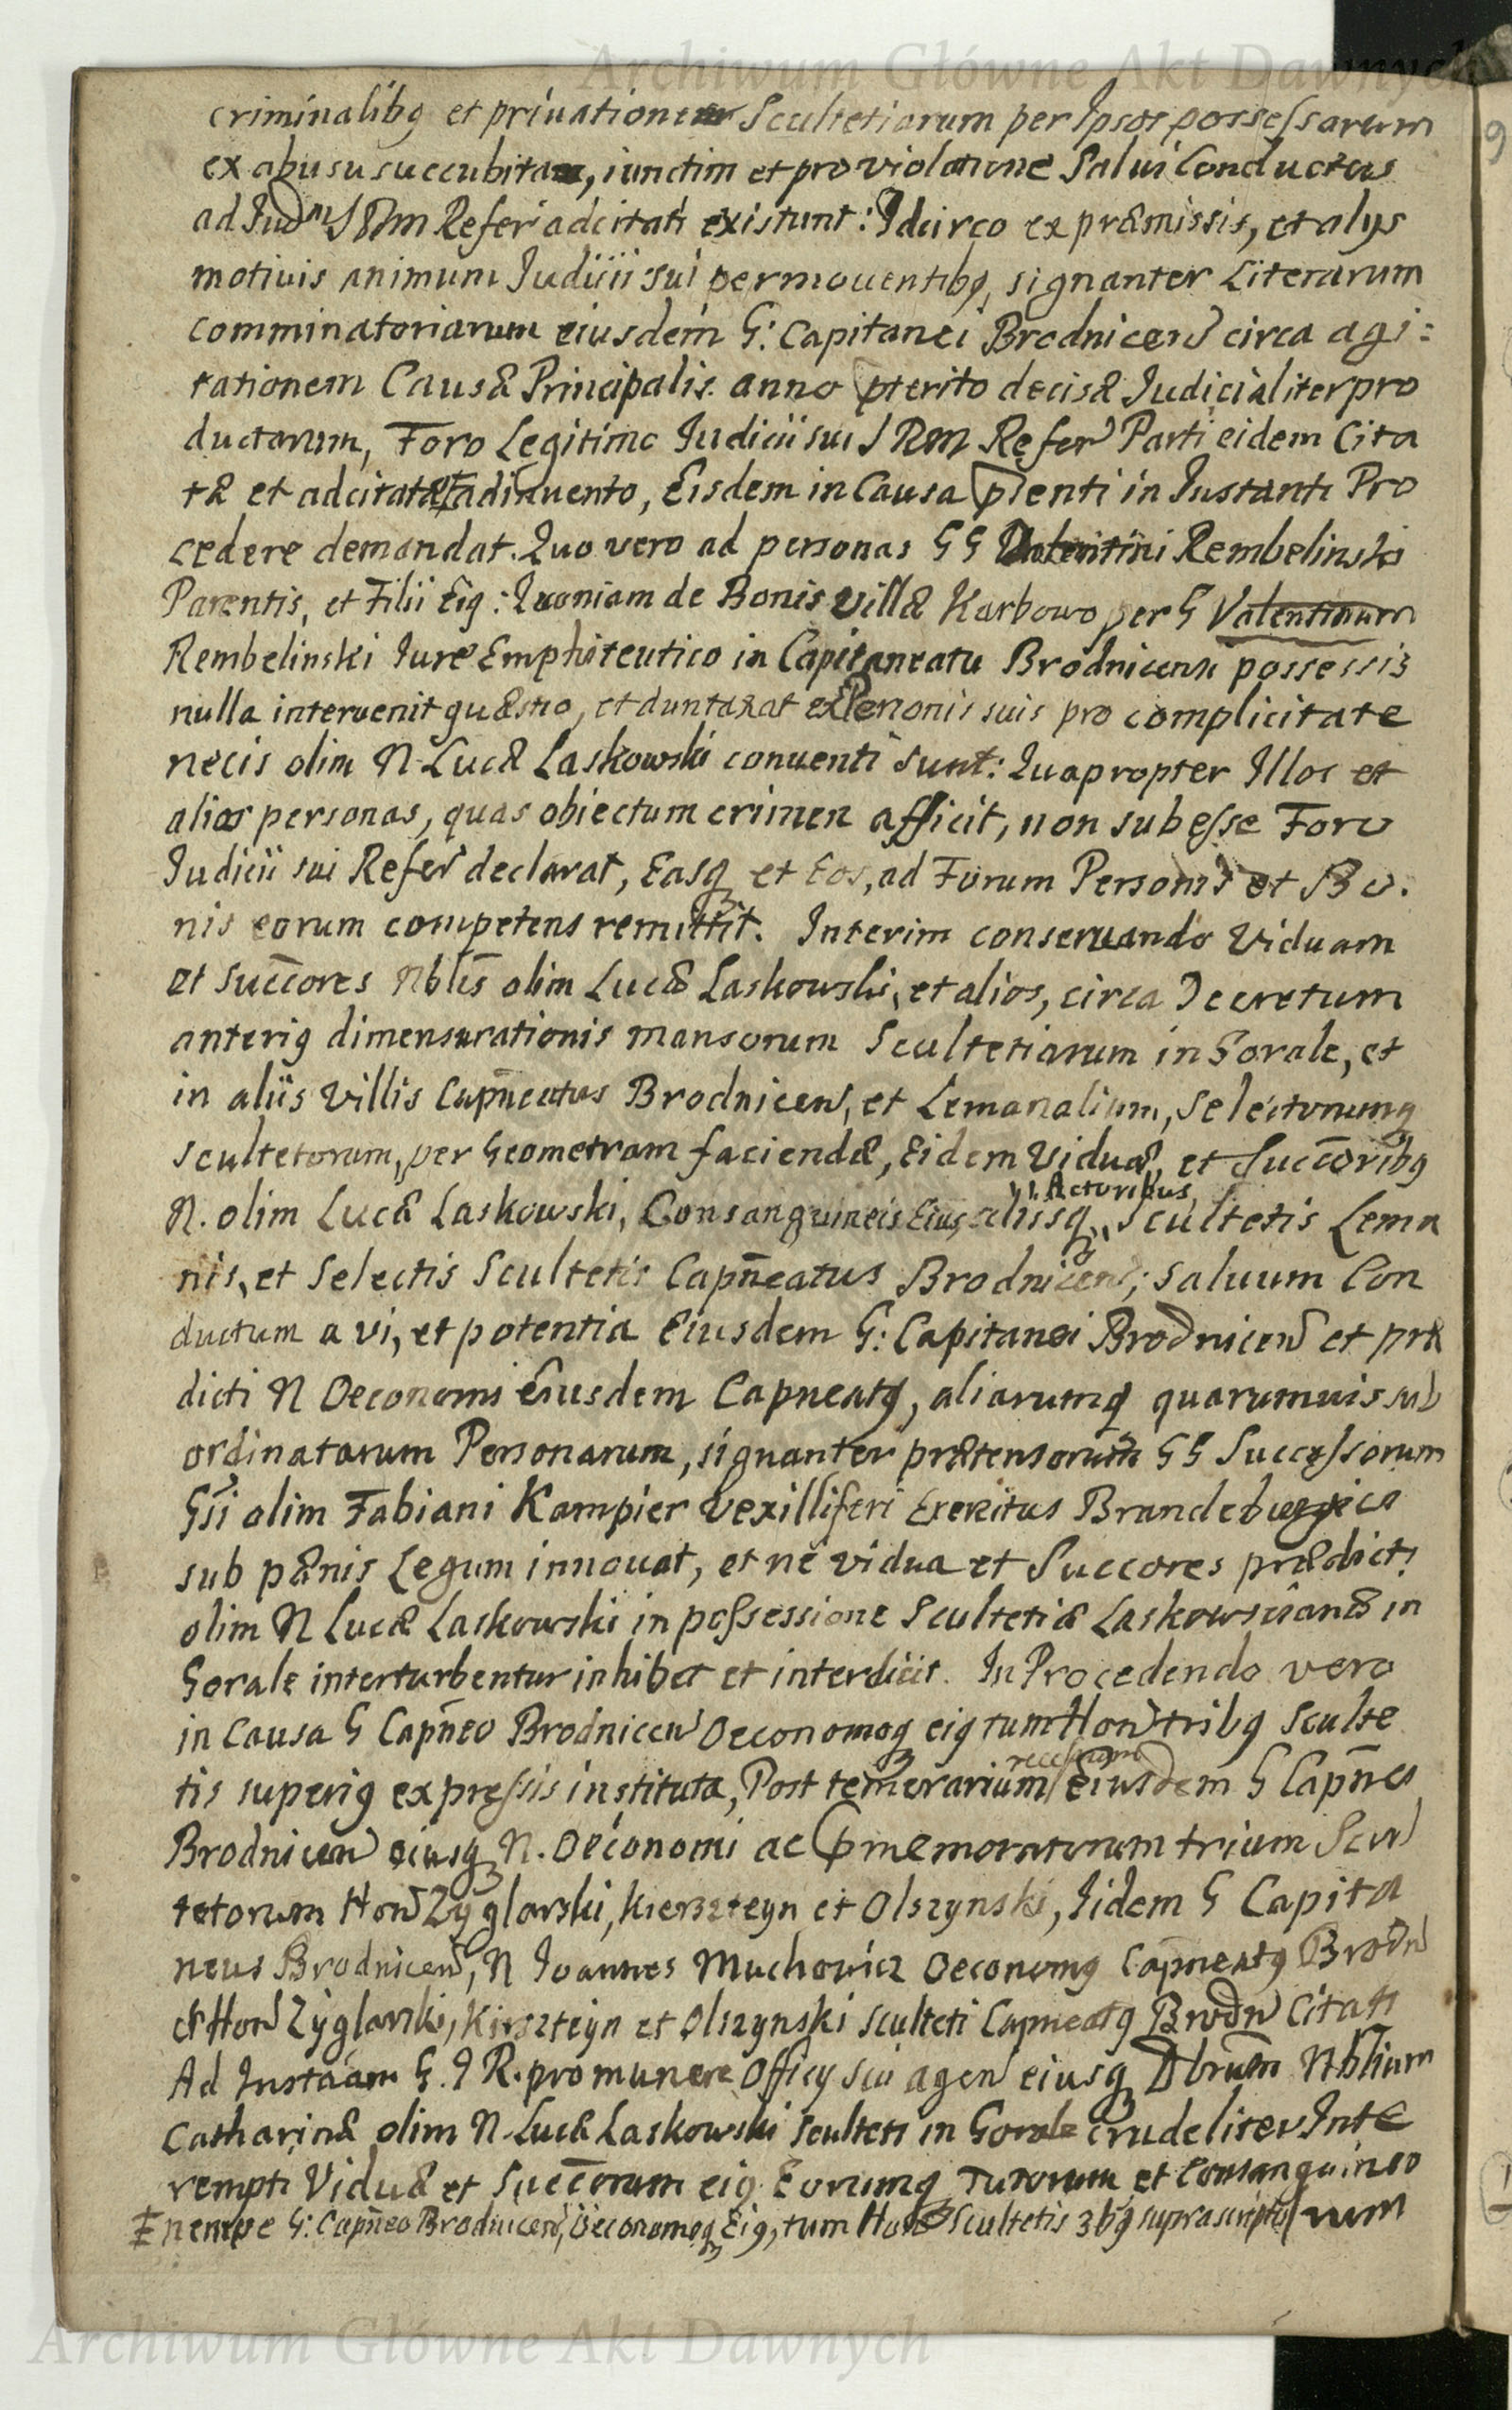 Archiwum Główne Akt Dawnych
criminalibq et priuatione Scultetiarum per Ipsos possessarum
ex abusu succubita, iunctim et pro violatione Salui Conductus
ad Iud SRM Refer adcitati existunt: Idcirco ex præmissis, et alys
motiuis animum Iudicii sui permouentibq, signanter Literarum
comminatoriarum eiusdem G: Capitanei Brodnicen circa agi:
tationem Causæ Principalis anno pterito decisæ Iudicialiter pro
ductarum, Foro Legitimo Iudicii sui SRM Refer Parti eidem Cita
tæ et adcitatæ adinuento, Eisdem in Causa pnti in Instanti Pro
cedere demandat. Quo vero ad personas GG Valentini Rembelinski
Parentis, et Filii Eiq: Quoniam de Bonis Villæ Karbowo per G Valentinum
Rembelinski Iure Emphiteutico in Capitaneatu Brodnicensi possessis
nulla interuenit quæstio, et duntaxat ex Personis suis pro complicitate
necis olim N Lucæ Laskowski conuenti sunt: Quapropter Illos et
alias personas, quas obiectum crimen afficit, non subesse Foro
Iudicii sui Refer declarat, Easq et Eos, ad Forum Personis et Bo.
nis eorum competens remittit. Interim conseruando Viduam
et Succores Nblis olim Lucæ Laskowski, et alios, circa Decretum
anteriq dimensurationis mansorum Scultetiarum in Gorale, et
in aliis Villis Capneatus Brodnicen, et Lemanalium, Selectorumq
Scultetorum, per Geometram faciendæ, Eidem Viduæ, et Succoribq
Actoribus
N. olim Lucæ Laskowski, Consanguineis Eius, aliisq, Scultetis Lema
nis, et Selectis Scultetis Capneatus Brodnicens; saluum Con
ductum a vi, et potentia Eiusdem G: Capitanei Brodnicen et præ
dicti N Oeconomi Eiusdem Capneatq, aliarumq quarumuis sub
ordinatarum Personarum, signanter prætensorum GG Successorum
Gsi olim Fabiani Kampier Vexilliferi Exercitus Brandeburgici
sub pænis Legum innouat, et ne vidua et Succores prædicti
olim N Lucæ Laskowski in possessione Scultetiæ Laskowscianæ in
Gorale interturbentur inhibet et interdicit. In Procedendo vero
in Causa G Capneo Brodnicen Oeconomoq eiq tum Hon tribq Sculte
recessum
tis superiq expressis instituta, Post temerarium eiusdem G Capnei
Brodnicen eiusq N. Oeconomi ac pmemoratorum trium Scul
tetorum Hon Zyglarski, Kierszteyn et Olszynski, Iidem G Capita
neus Brodnicen, N Ioannes Muchowicz Oeconomq Capneatq Brodn
et Hon Zyglarski, Kirszteyn et Olszynski sculteti Capneatq Brodn Citati
Ad Instaam G. I R. pro munere Officy sui agen eiusq Dbrum Nblium
Catharinæ olim N. Lucæ Laskowski sculteti in Gorale crudeliter Inte
rempti Viduæ et Succorum eiq Eorumq Tutorum et Consanguineo
nempe G: Capneo Brodnicen, Oeconomoq Eiq, tum Hon Scultetis 3bq suprascriptis rum
Archiwum Główne Akt Dawnych